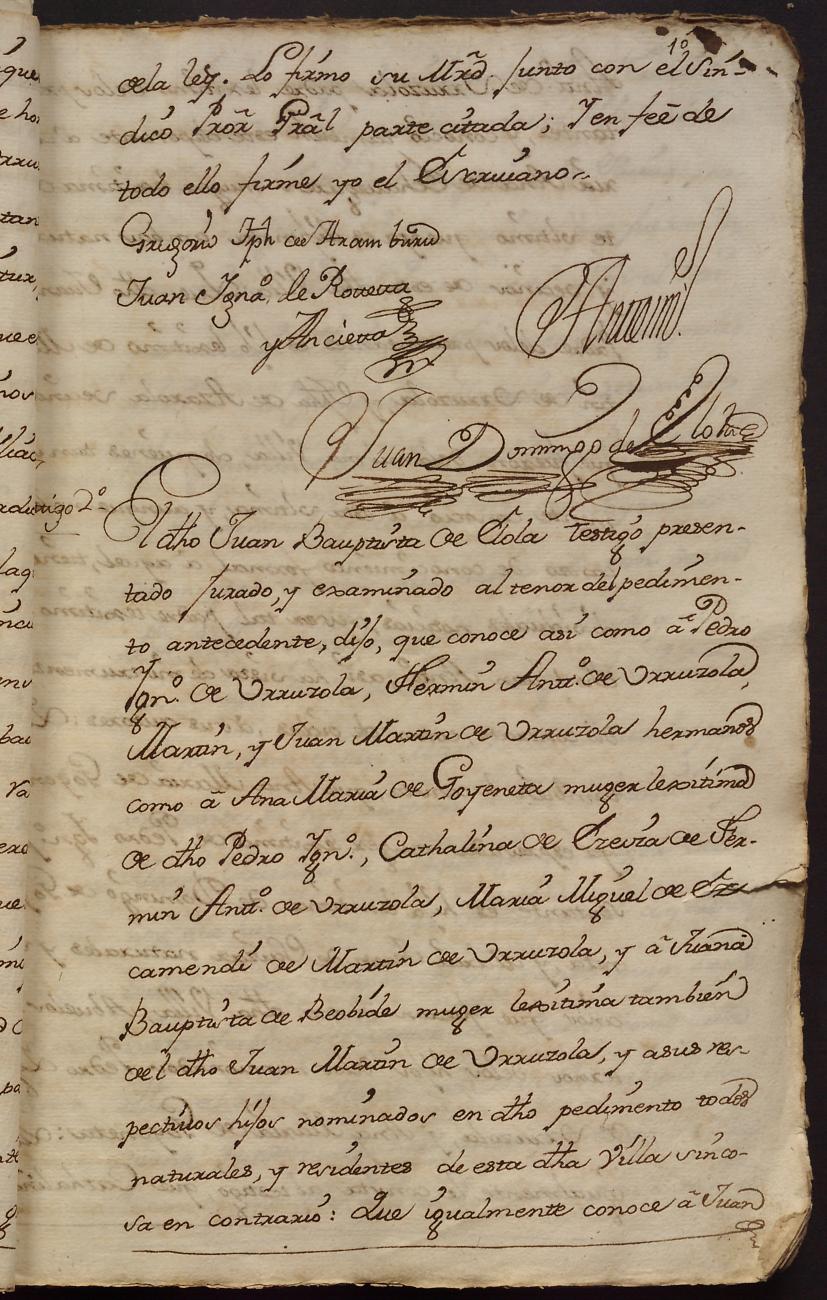 10
dela ley. Lo firmo su Mrd. Junto con el Sin=
dico Pror Gral parte citada; Y en feè de
todo ello firmè yo el Escrivano..
Gregorio Jph de Aramburu
Juan Ignaº. de Rotteta
y Ancietta
Antemi.
Juan Domingo de
testigo 2º
El dho Juan Bauptista de Elola testigo presen-
tado Jurado, y examinado al tenor del pedimen-
to antecedente, dijo, que conoce asi como â Pedro
Ygnº. de Urruzola, Fermin Anttº. de Urruzola,
Martin, y Juan Martin de Urruzola hermanos
como â Ana Maria de Goyeneta muger lexitima
de dho Pedro Ignº., Cathalina de Ereviza de Fer-
min Anttº. de Urruzola, Maria Miguel de Ez
camendi de Martin de Urruzola, y â Juana
Bauptista de Beobide muger lexitima tambien
del dho Juan Martin de Urruzola, y asus res-
pectivos hijos nominados en dho pedimento todos
naturales, y residentes de esta dha Villa sin co-
sa en contrario: Que igualmente conoce â Juan